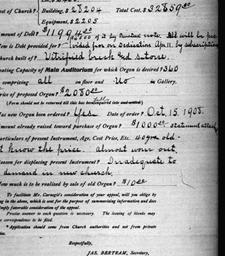 of Church? Building, $28204 Total Cost, $32859.00
Equipment, $2205
Amount of Debt? $11994.00 All will be pro
How is Debt provided for? vided for on Dedication Apr. 11. by subscription
Church built of Vitrified brick and stone.
Seating Capacity of Main Auditorium for which Organ is desired? 360
comprising all on floor and no in Gallery.
Price of proposed Organ? $2080.00
(Form should not be returned till this has been
Has new Organ been ordered? Yes Date of order? Oct 15. 1908.
Amount already raised toward purchase of Organ? $1000.00
Particulars of present Instrument, Age, Cost Price, Etc. 10 yrs old
not know the price. Almost worn out.
Reason for displacing present Instrument? Inadequate to
demand in new church
How much is to be realized by sale of old Organ? $10.00
To facilitate Mr. Carnegie's consideration of your appeal, will you oblige by
ing in the above, which is sent for the purpose of summarizing information and does
imply favorable consideration of the appeal.
Precise answer to each question is necessary. The issuing of blanks may
correspondence to be filed.
*Application should come from Church authorities and not from private
Respectfully,
JAS. BERTRAM, Secretary,